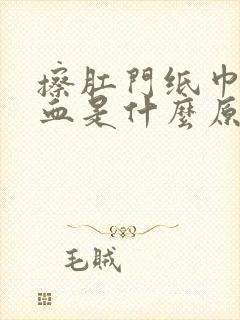 擦肛門纸巾
血是什麼原
毛賊